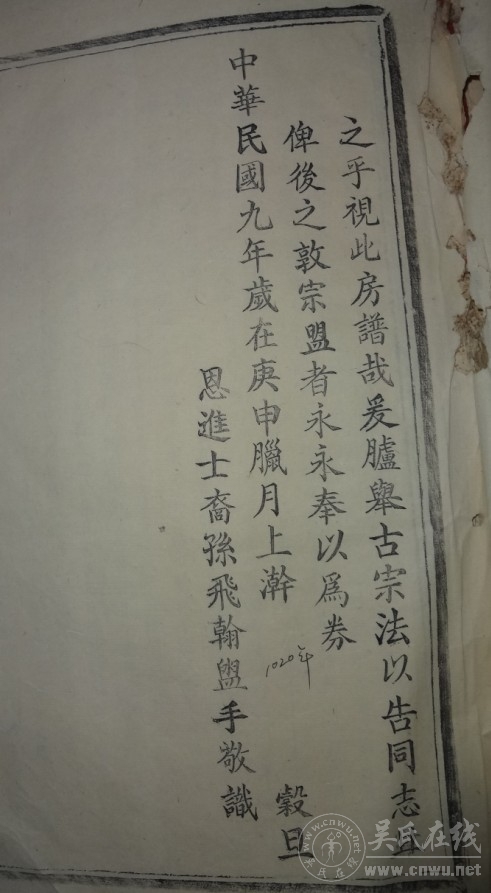 之乎視此房譜哉爰臚舉古宗法以告同志
俾後之敦宗盟者永永奉以為券
中華民國九年歲在庚申臘月上澣
穀旦
1020年
恩進士裔孫飛翰盥手敬識
吳氏在线
www.cnwu.net